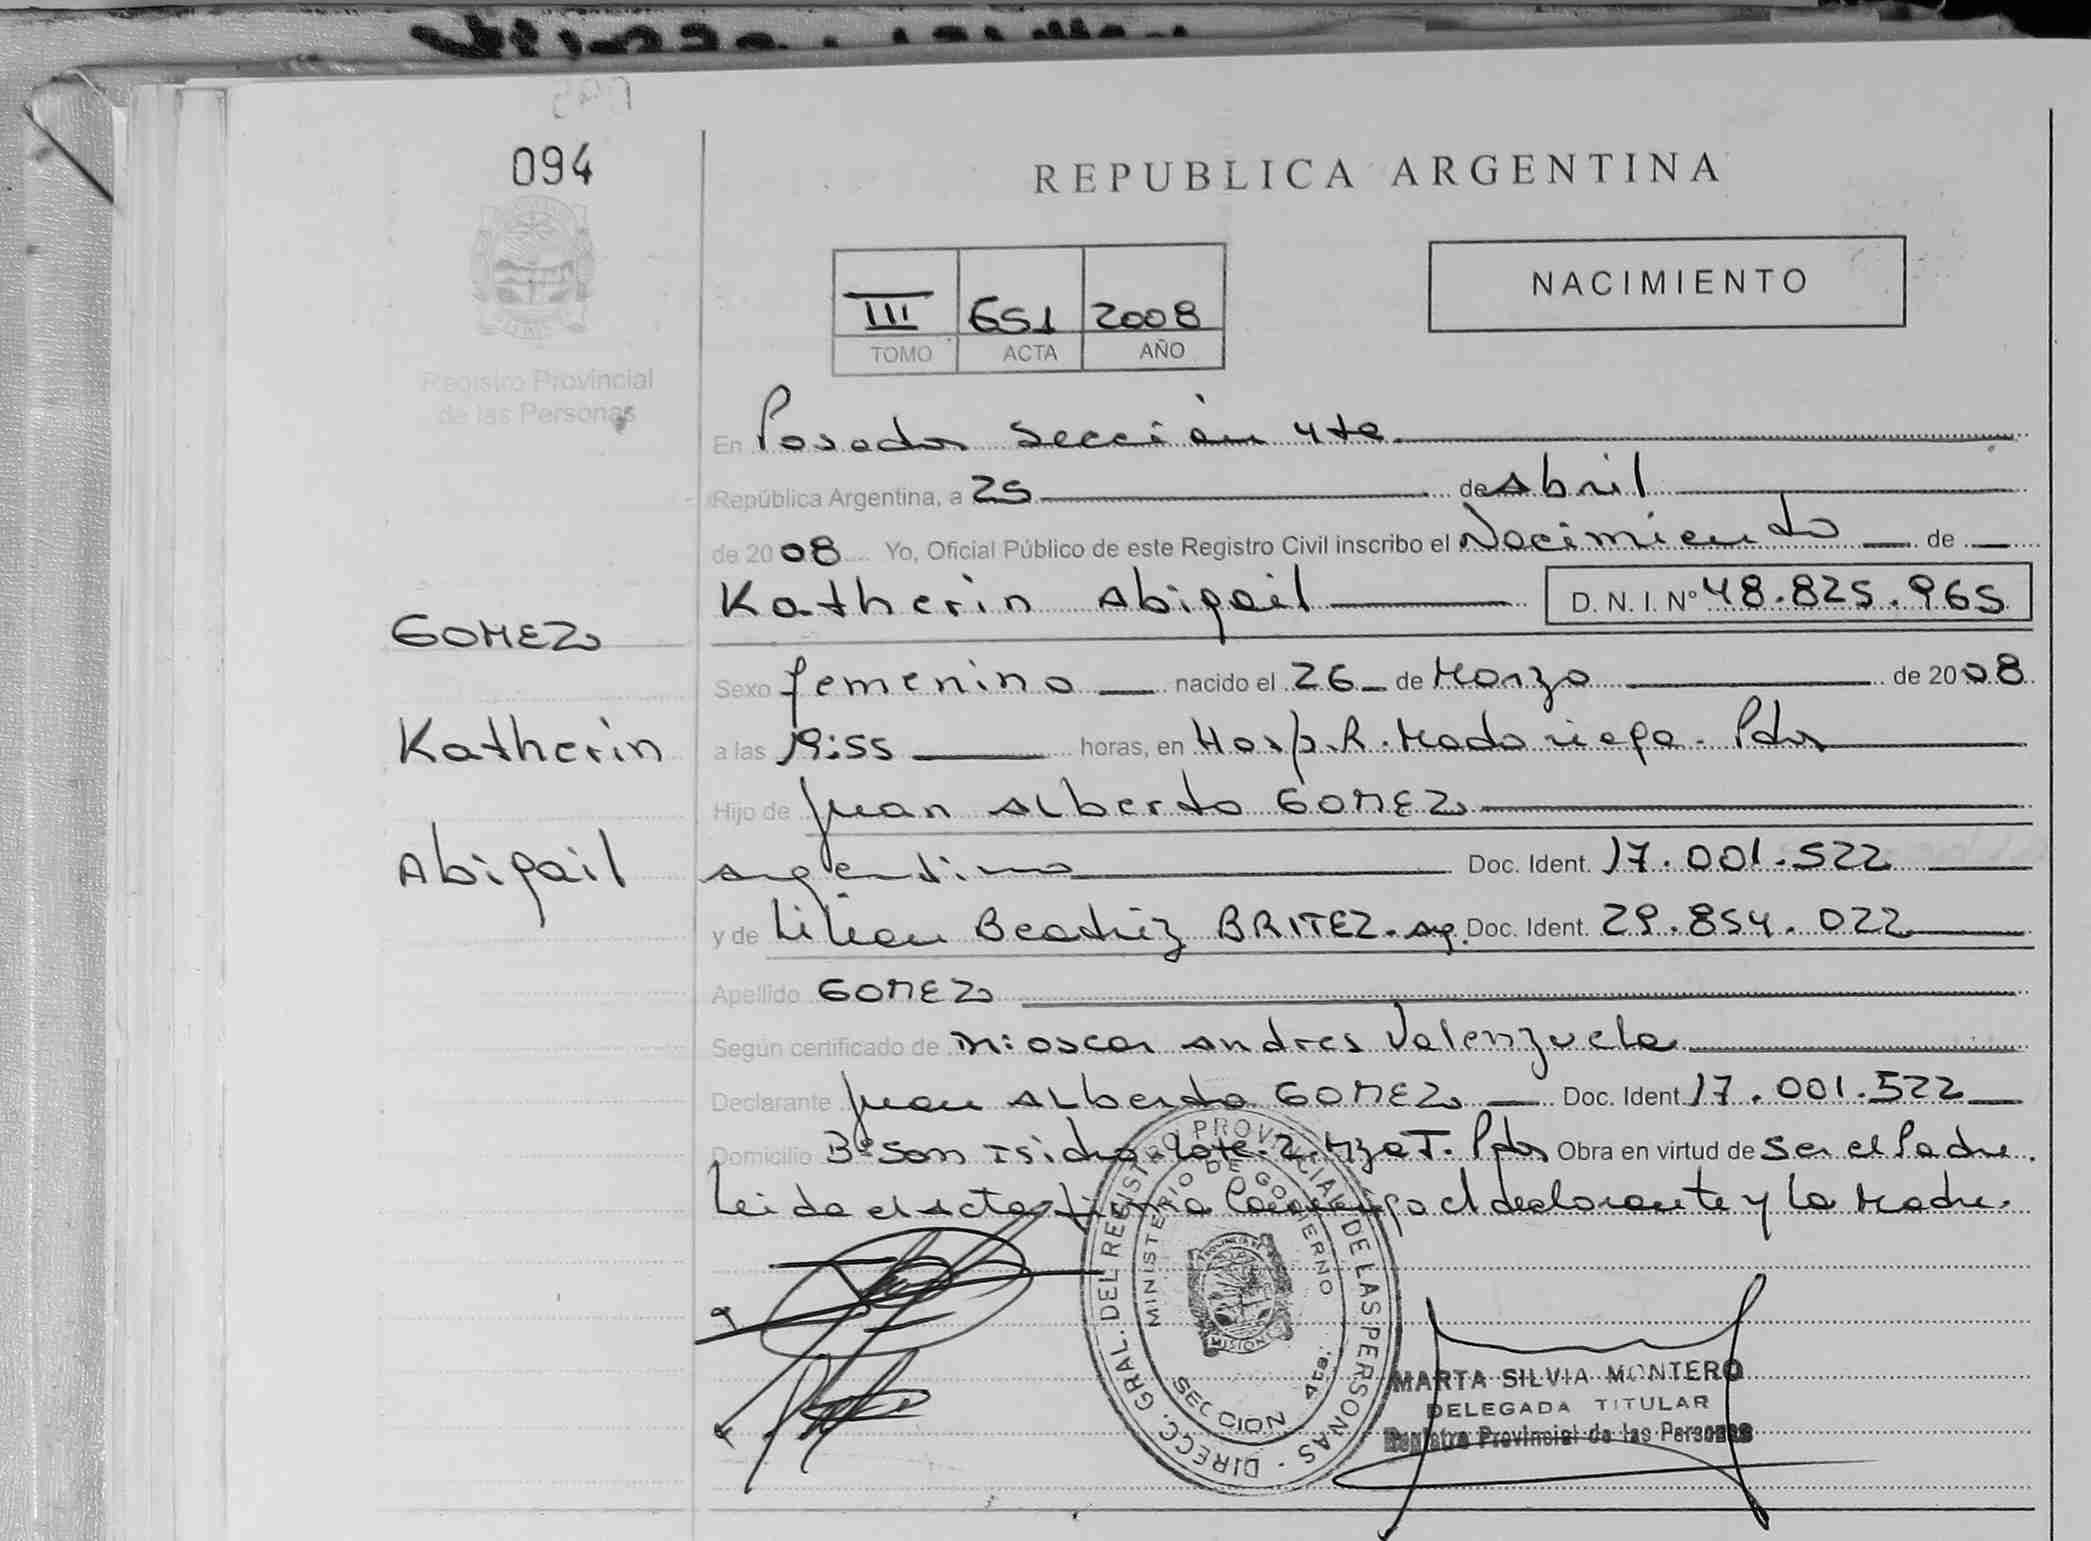 094
REPUBLICA ARGENTINA
NACIMIENTO
III 651 2008
TOMO ACTA AÑO
Registro Provincial
de las Personas
En Posadas Sección 4ta
República Argentina, a 25 de Abril
de 2008 Yo, Oficial Público de este Registro Civil inscribo el Nacimiento de
Katherin Abigail D. N. I. Nº 48.825.965
GOMEZ
Sexo femenino nacido el 26 de Marzo de 2008
Katherin
a las 19:55 horas, en Hosp. R. Madariaga. Pdas
Hijo de Juan Alberto GOMEZ
Abigail
argentino Doc. Ident. 17.001.522
y de Lilian Beatriz BRITEZ. arg. Doc. Ident. 29.854.022
Apellido GOMEZ
Según certificado de Dr: Oscar Andres Valenzuela
Declarante Juan Alberto GOMEZ Doc. Ident 17.001.522
Domicilio Bº San Isidro. Lote. 2. Mza T. Pdas Obra en virtud de ser el Padre.
Leida el acta firma conmigo el declarante y la Madre.
DIRECC. GRAL. DEL REGISTRO PROVINCIAL DE LAS PERSONAS
MINISTERIO DE GOBIERNO
MISIONES
SECCION 4ta.
MARTA SILVIA MONTERO
DELEGADA TITULAR
Registro Provincial de las Personas